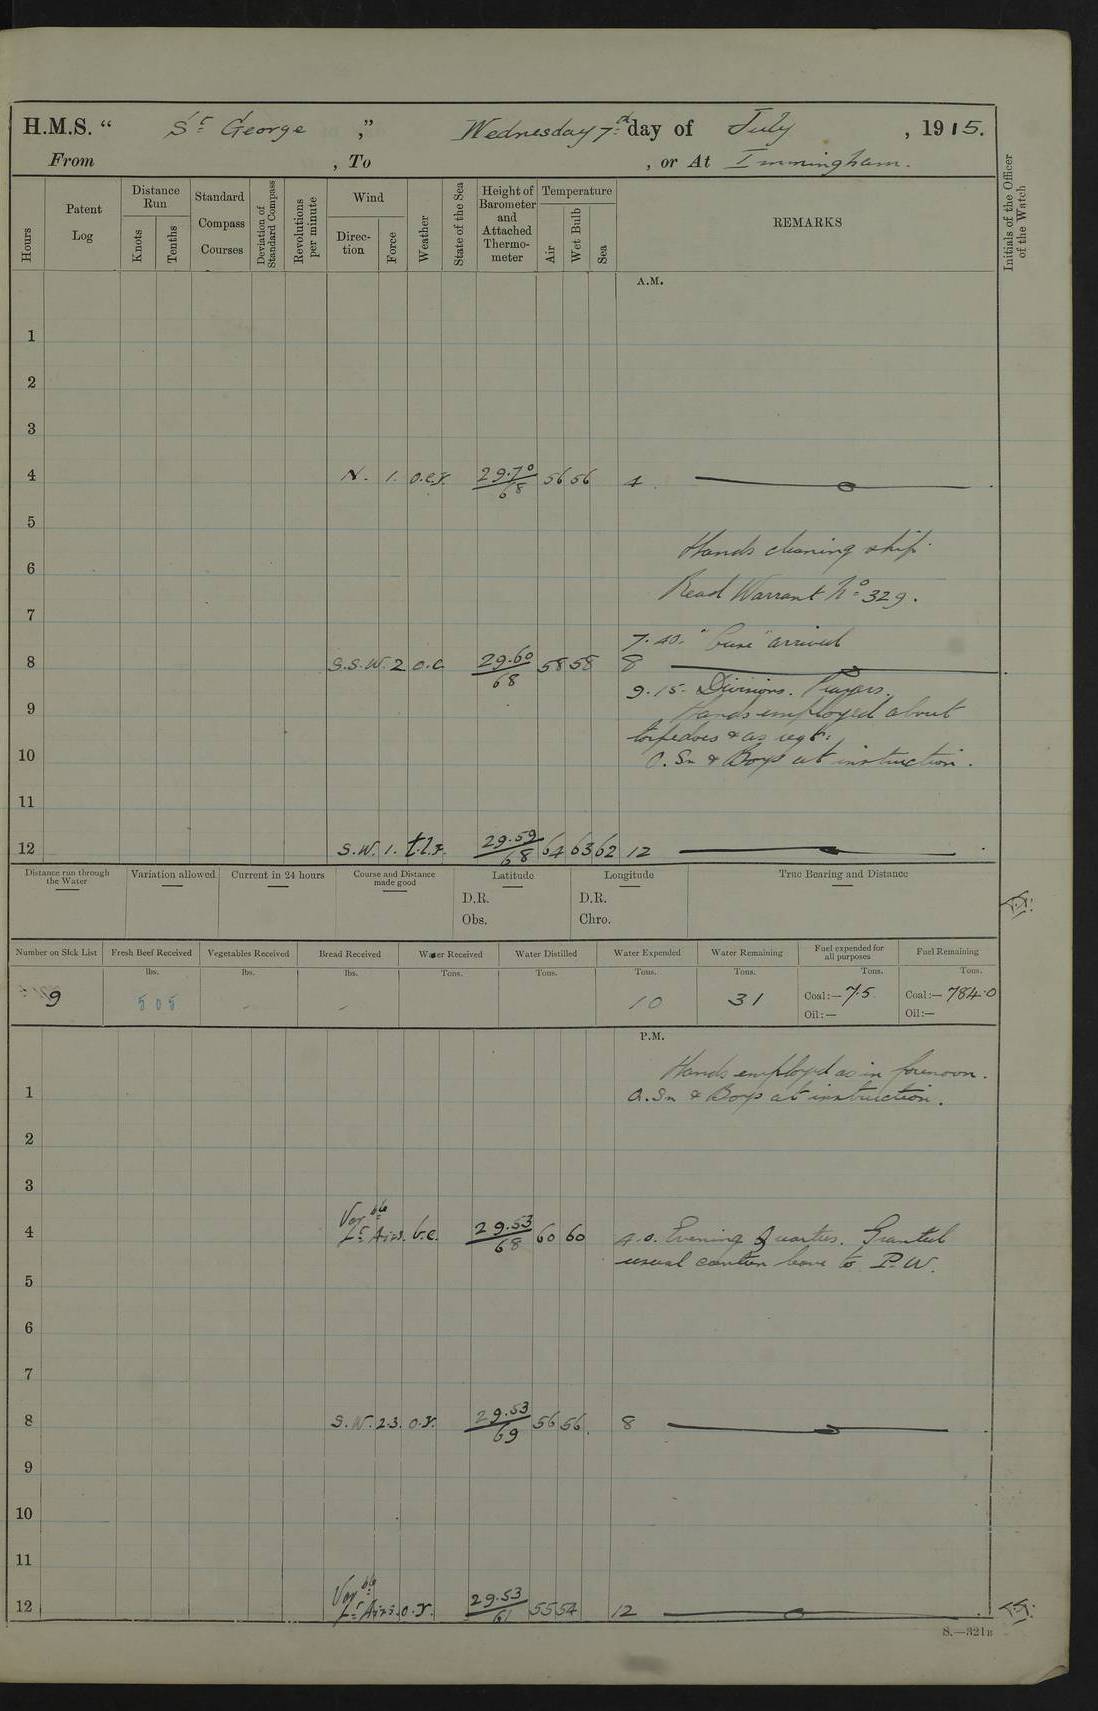 H.M.S. “ St George ,” Wednesday 7th day of July , 1915.
From , To , or At Immingham.
Hours
Patent Log
Distance Run
Knots
Tenths
Standard Compass Courses
Deviation of Standard Compass
Revolutions per minute
Wind
Direction
Force
Weather
State of the Sea
Height of Barometer and Attached Thermometer
Temperature
Air
Wet Bulb
Sea
REMARKS
Initials of the Officer of the Watch
A.M.
1
2
3
4 N. 1. o.c.r. 29.70/68 56 56 4
5
Hands cleaning ship.
6
Read Warrant No 329.
7
7.40. arrived
8 S.S.W. 2 o.c. 29.60/68 58 58 8
9.15. Divisions. Prayers.
9 Hands employed about
torpedoes & as reqd:
10 O. Sn & Boys at instruction.
11
12 S.W. 1. t.l.r. 29.59/68 64 63 62 12
Distance run through the Water
Variation allowed
Current in 24 hours
Course and Distance made good
Latitude
D.R.
Obs.
Longitude
D.R.
Chro.
True Bearing and Distance
Number on Sick List
Fresh Beef Received
Vegetables Received
Bread Received
Water Received
Water Distilled
Water Expended
Water Remaining
Fuel expended for all purposes
Fuel Remaining
lbs. lbs. lbs. Tons. Tons. Tons. Tons. Tons. Tons.
9 505 - - 10 31 Coal:— 7.5 Coal:— 784.0
Oil:— Oil:—
P.M.
Hands employed as in forenoon.
1 O. Sn & Boys at instruction.
2
3
4 Varble Lt Airs. b.c. 29.53/68 60 60 4.0. Evening Quarters. Granted
usual canteen leave to P.W.
5
6
7
8 S.W. 2.3. o.r. 29.53/69 56 56. 8
9
10
11
12 Varble Lt Airs. o.r. 29.53/61 55 54 12
S.—321B